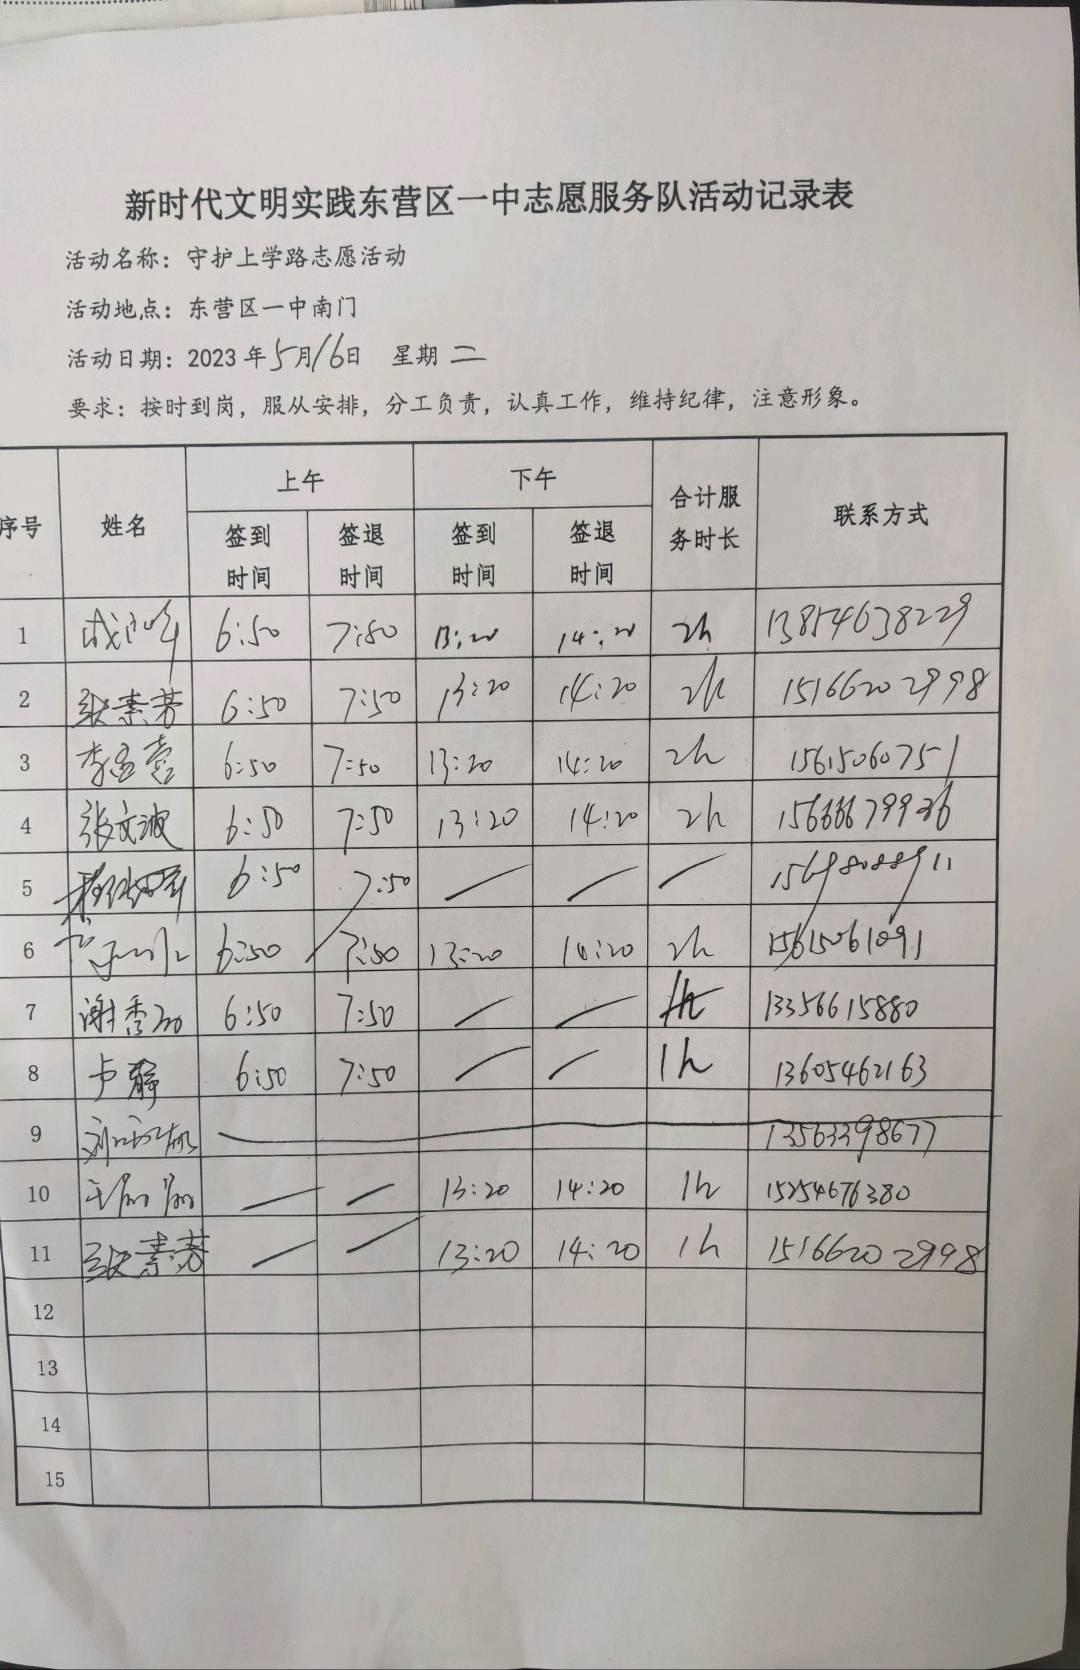 新时代文明实践东营区一中志愿服务队活动记录表
活动名称：守护上学路志愿活动
活动地点：东营区一中南门
活动日期：2023年5月16日 星期二
要求：按时到岗，服从安排，分工负责，认真工作，维持纪律，注意形象。
序号 姓名 上午 下午 合计服务时长 联系方式
签到时间 签退时间 签到时间 签退时间
1 6:50 7:50 13:20 14:20 2h 13854638229
2 素芳 6:50 7:50 13:20 14:20 2h 15166202998
3 李孟喜 6:50 7:50 13:20 14:20 2h 15615060751
4 张文波 6:50 7:50 13:20 14:20 2h 15666679936
5 6:50 7:50 / / / 15698088911
6 6:50 7:50 13:20 14:20 2h 15615061091
7 谢秀 6:50 7:50 / / 1h 13356615880
8 卢静 6:50 7:50 / / 1h 13605462163
9 刘 13563398677
10 王 / / 13:20 14:20 1h 15254676380
11 素芳 / / 13:20 14:20 1h 15166202998
12
13
14
15